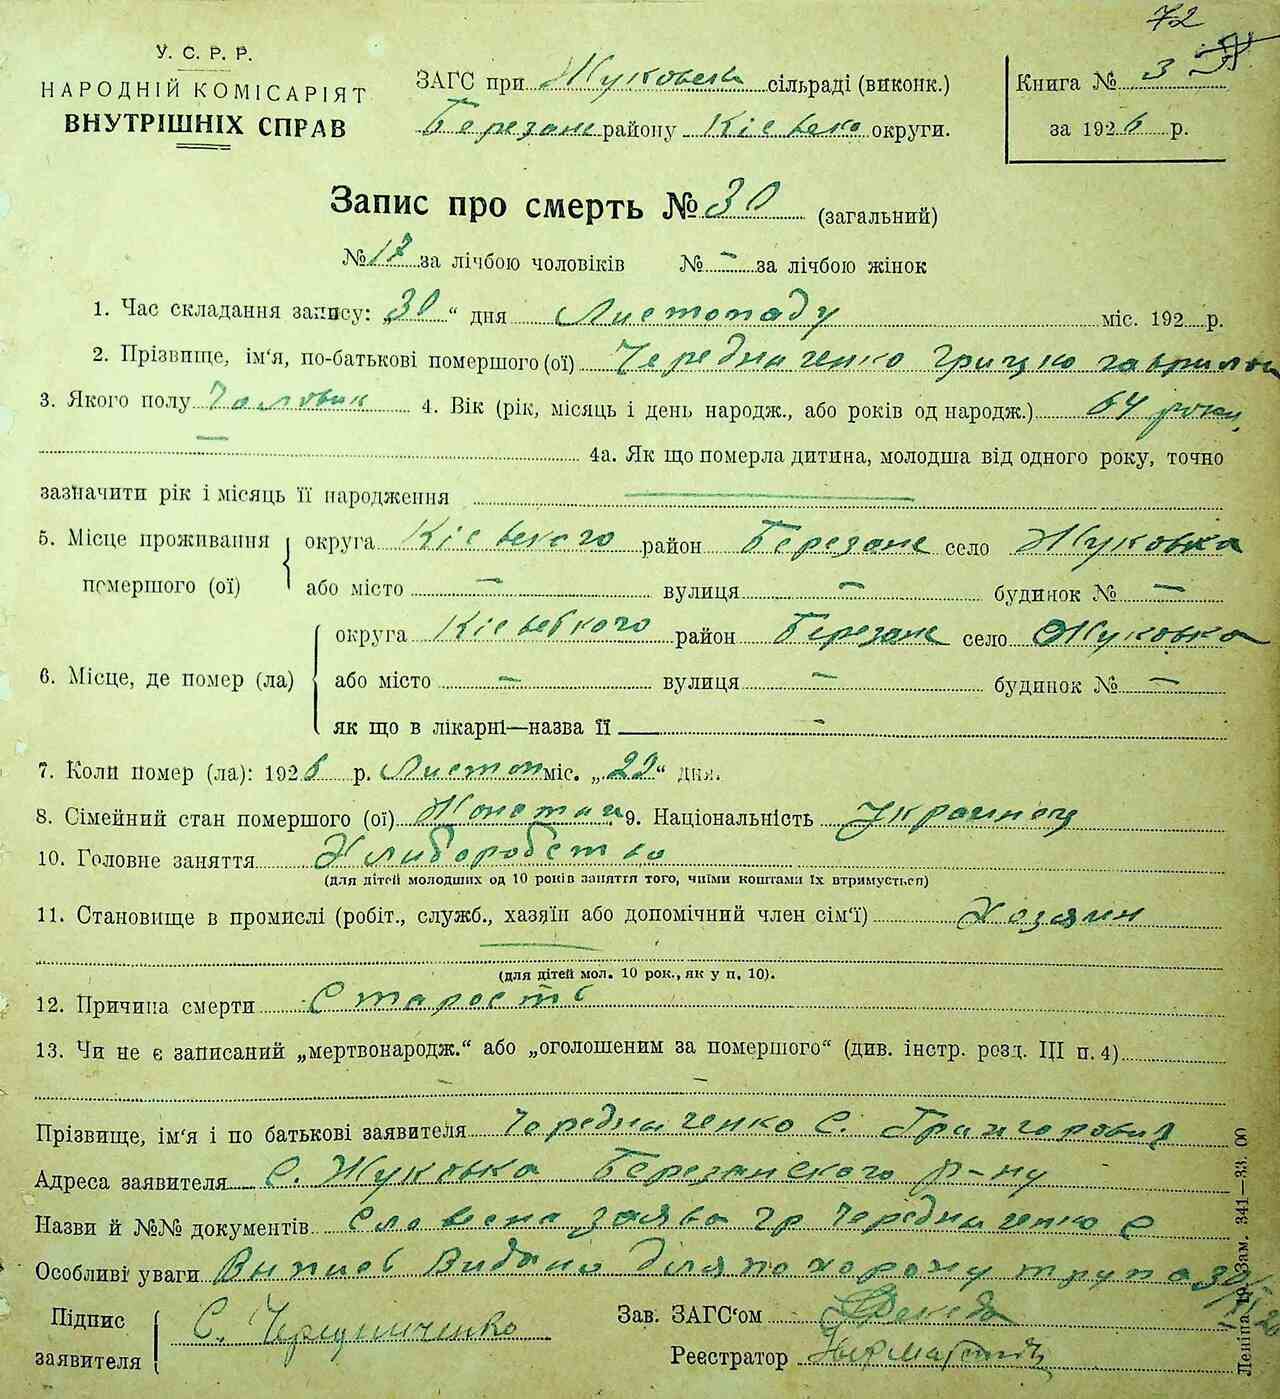 72
У. С. Р. Р.
НАРОДНІЙ КОМІСАРІЯТ
ВНУТРІШНІХ СПРАВ
ЗАГС при Жуковськ сільраді (виконк.)
Березанс району Кієвско округи.
Книга № 3
за 1926 р.
Запис про смерть № 30 (загальний)
№ 17 за лічбою чоловіків № – за лічбою жінок
1. Час складання запису: „30“ дня Листопаду міс. 192 р.
2. Прізвище, ім‘я, по-батькові помершого (ої) Чередниченко Грицко Гаврилов
3. Якого полу Чаловик 4. Вік (рік, місяць і день народж., або років од народж.) 64 роки,
– 4а. Як що померла дитина, молодша від одного року, точно
зазначити рік і місяць її народження –
5. Місце проживання помершого (ої) округа Кієвского район Березанс село Жуковка
або місто – вулиця – будинок № –
6. Місце, де помер (ла) округа Кієвского район Березанс село Жуковка
або місто – вулиця – будинок № –
як що в лікарні—назва її –
7. Коли помер (ла): 1926 р. Листоп міс. „29“ дня.
8. Сімейний стан помершого (ої) Жонатий 9. Національність Украинец
10. Головне заняття Хлиборобство
(для дітей молодших од 10 років заняття того, чиїми коштами їх втримується)
11. Становище в промислі (робіт., служб., хазяїн або допомічний член сім‘ї) Хозяин
–
(для дітей мол. 10 рок., як у п. 10).
12. Причина смерти Старость
13. Чи не є записаний „мертвонародж.“ або „оголошеним за помершого“ (див. інстр. розд. ІІІ п. 4)
–
Прізвище, ім‘я і по батькові заявителя Чередниченко С. Григорович
Адреса заявителя С. Жуковка Березанского р-ну
Назви й №№ документів Словесна заява гр Чередниченко С
Особливі уваги Випись Видано для похорону трупа 30/XI 26
Підпис заявителя С. Чередниченко
Зав. ЗАГС‘ом
Реєстратор
Зам. 341—33. 00